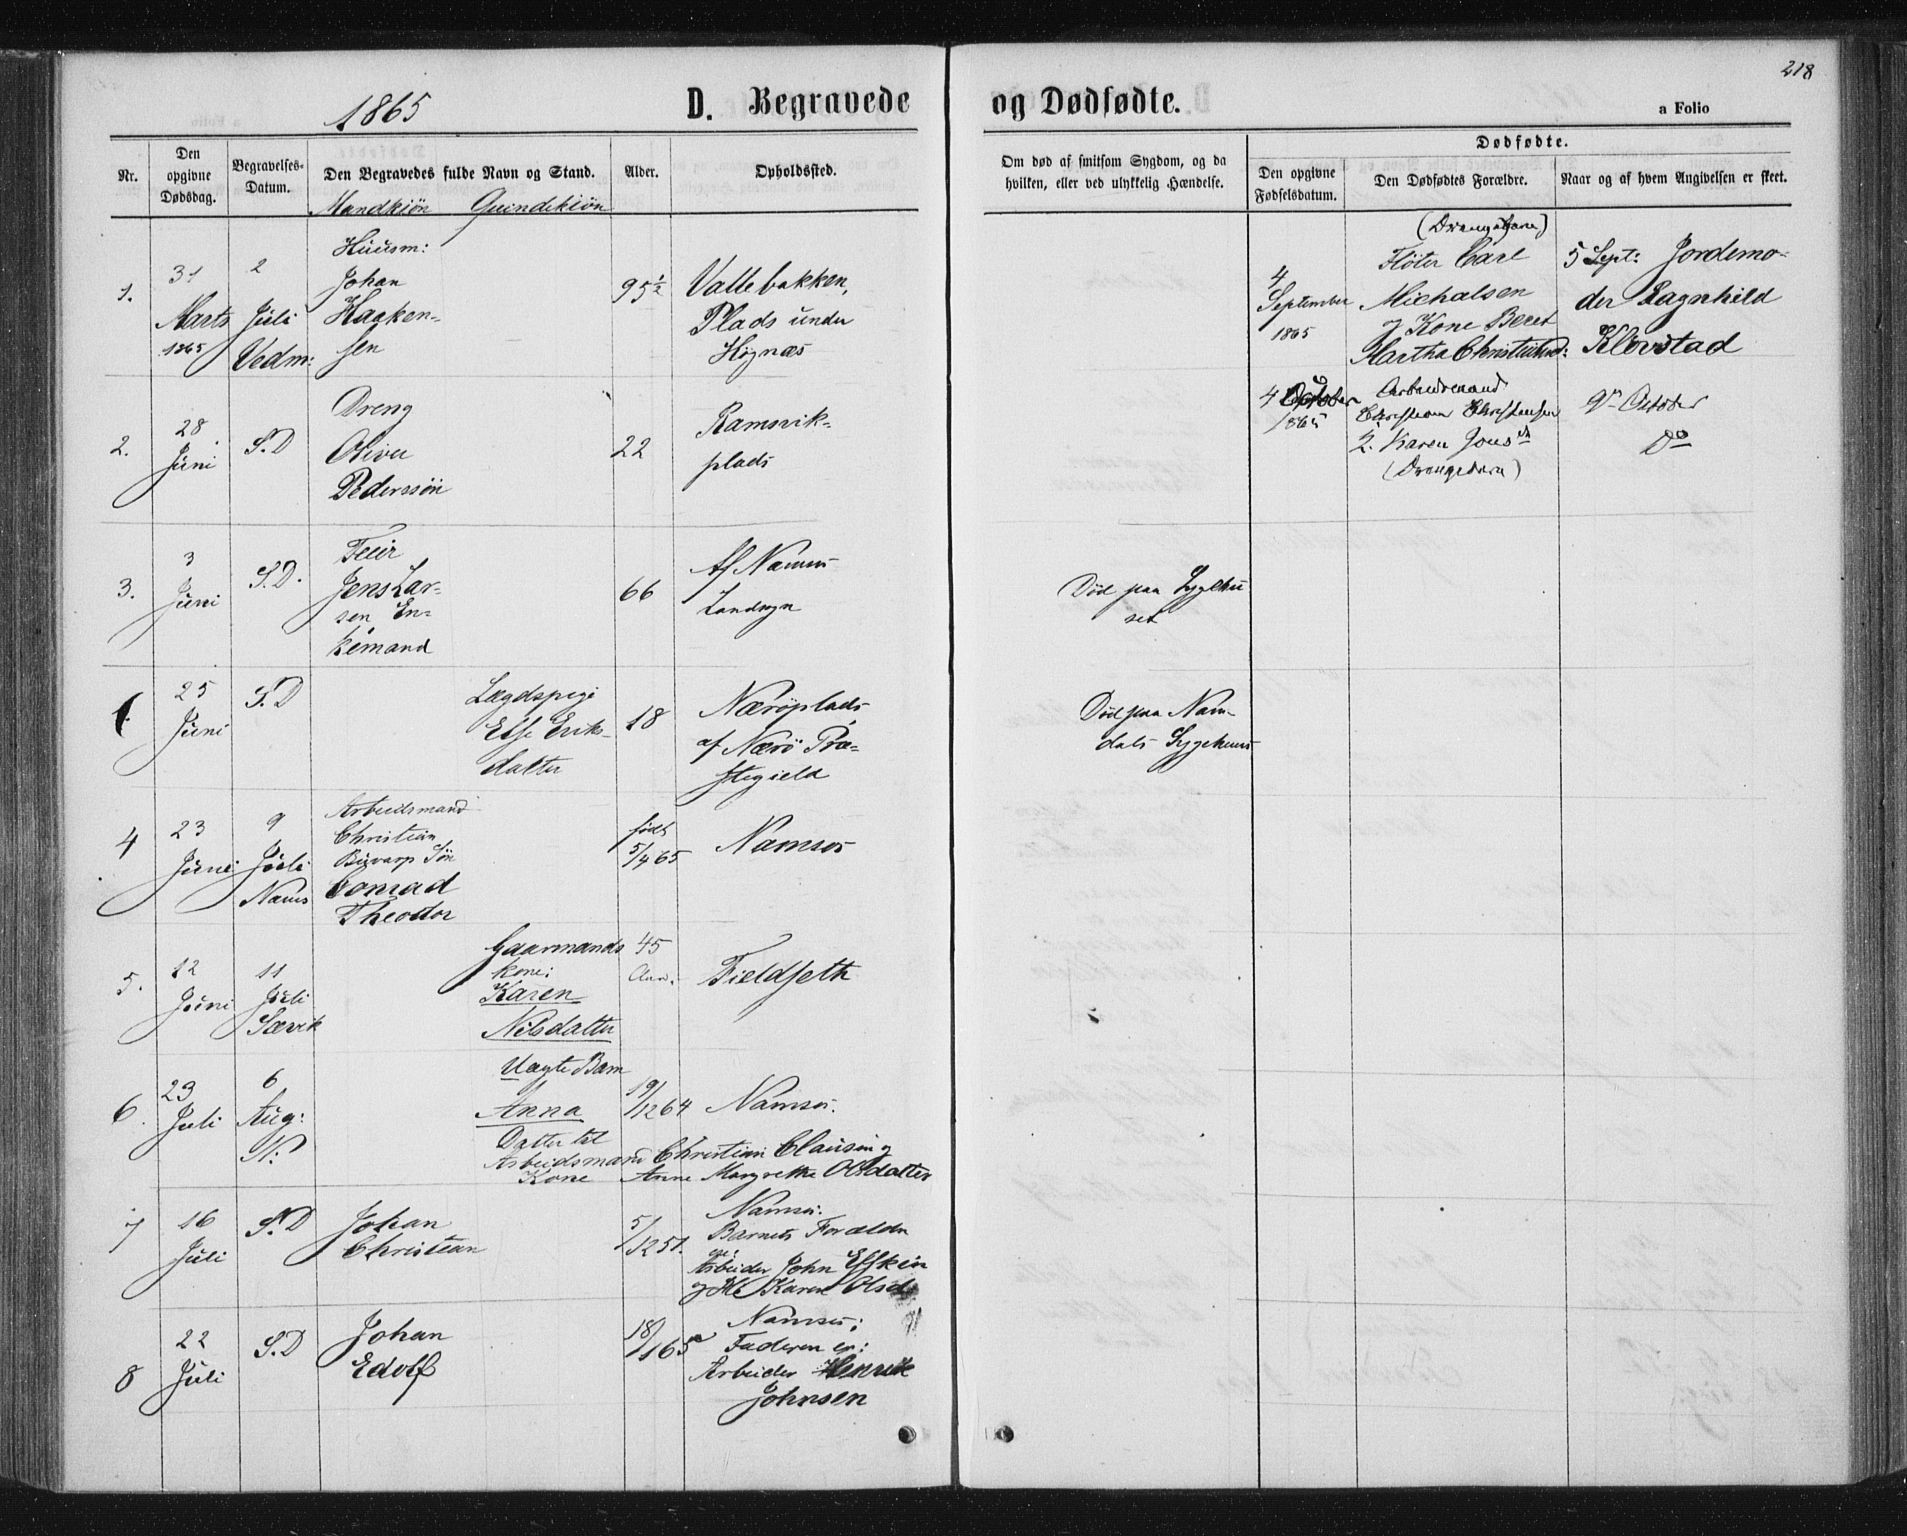 218
1865
D. Begravede og Dødfødte.
a Folio
Nr.
Den opgivne Dødsdag.
Begravelses-Datum.
Den Begravedes fulde Navn og Stand.
Mandkiön Quindekiön
Alder.
Opholdssted.
Om død af smitsom Sygdom, og da
hvilken, eller ved ulykkelig Hændelse.
Dødfødte.
Den opgivne
Fødselsdatum.
Den Dødfødtes Forældre.
Naar og af hvem Angivelsen er skeet.
1.
31
Marts
1865
2
Juli
Vedm:
Huusm:
Johan
Haaken-
sen
95½
Valtebakken,
Plads under
Høgnæs
4
September
1865
(Drengebarn)
Fløter Carl
Michalsen
og Kone Beret
Martha
5 Sept: Jordemo-
der Ragnhild
Klovstad
2.
28
Juni
S.D
Dreng
Oliver
Pederssön
22
Ramsvik-
plads
4 October
1865
Arbeidsmand
Christian Christensen
Karen
(Drengebarn)
October
Do
3.
3
Juni
S.D.
Jens Lar-
sen En-
kemand
66
Af Namsos
Landsogn
Død paa Sygehu
set
25
Juni
S.D
Lægdspige
Else Eriks-
datter
18
Nærøplads
af Nærö Præ-
stegield
Død paa Nam-
dals Sygehuus
4
23
Juni
9
Juli
Nams
Arbeidsmand
Christian
Sön
Conrad
Theodor
født
5/4 65
Namsos
5.
12
Juni
11
Juli
Sævik
Gaarmands
kone:
Karen
Nilsdatter
45
Aar.
Fieldseth
6.
23
Juli
6
Aug:
N:
Uægte Barn
Anna
Datter tel
Arbeidsmand Christian Clausen og
Kone Anne Margrethe Olsdatter
19/12 64
Namsos.
7
16
Juli
S.D
Johan
Christian
5/12 51.
Namsos.
Barnets Forældre
ere
Arbeider John Eskin
og Karen Olsd
8
22
Juli
S.D
Johan
Edolf
18/1 65
Namsos;
Faderen er:
Arbeider Henrik
Johnsen